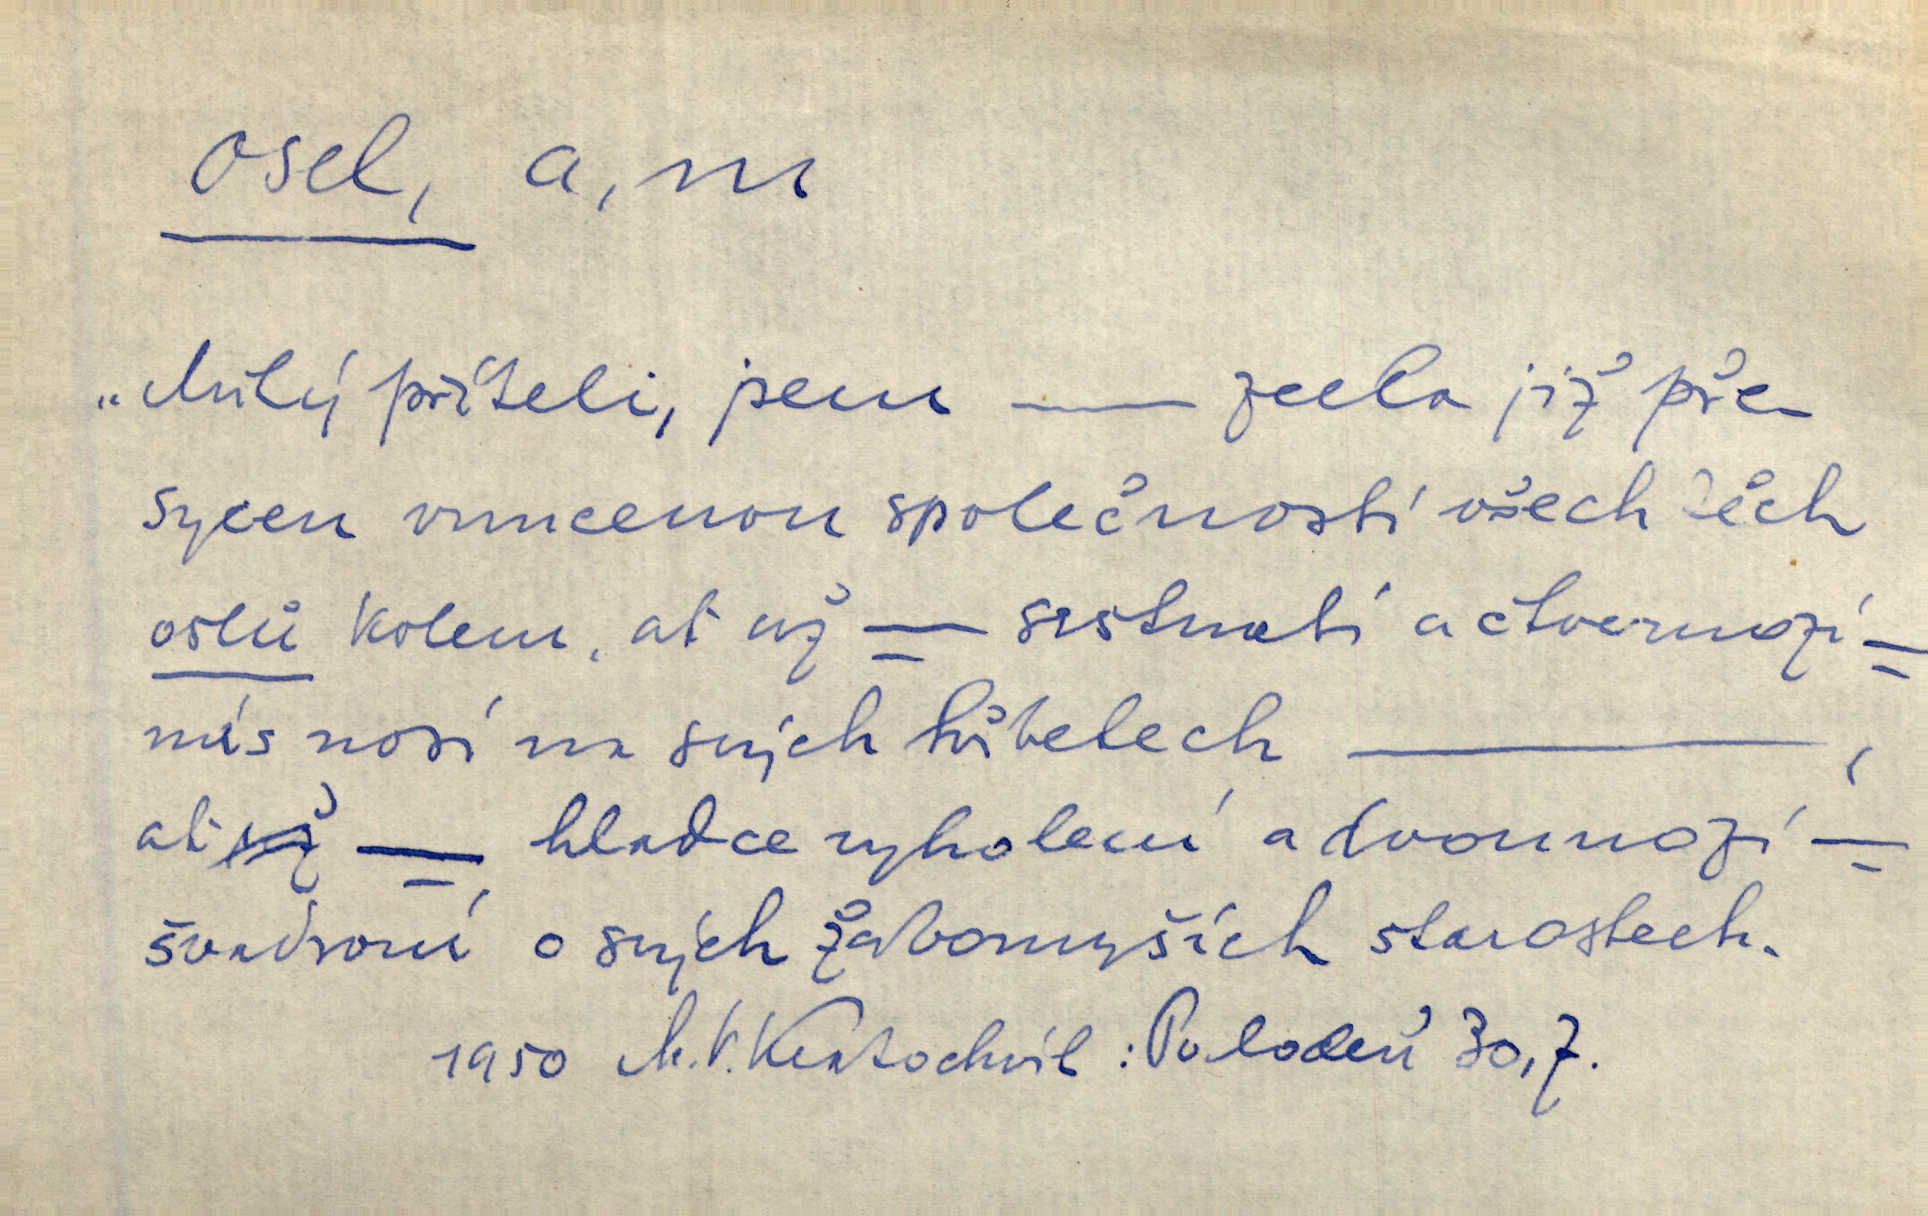 osel, a, m
„Milý příteli, jsem —— zcela již pře-
sycen vnucenou společností všech těch
oslů kolem, ať už — srstnatí a čtvernozí =
nás nosí na svých hřbetech ————,
ať už — hladce vyholení a dvounozí —
švadroní o svých žabomyších starostech.
1950 M. V. Kratochvíl : Puladeň 30, 7.